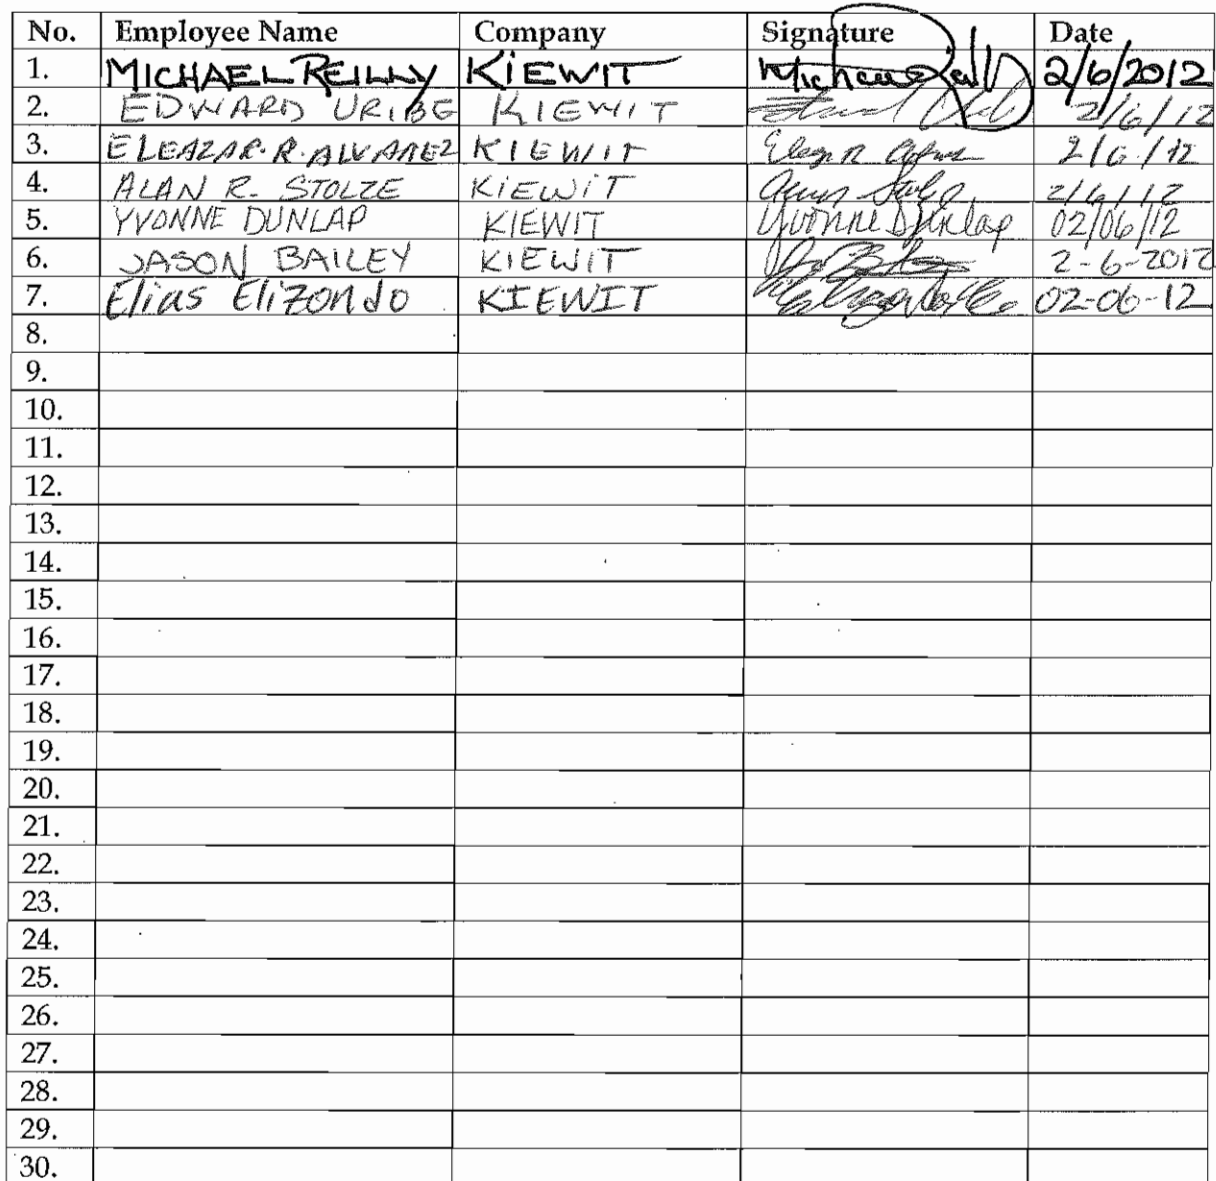 No. Employee Name Company Signature Date
1. MICHAEL REILLY KIEWIT Michael Reilly 2/6/2012
2. EDWARD URIBE KIEWIT 2/6/12
3. ELEAZAR.R.ALVAREZ KIEWIT 2/6/12
4. ALAN R. STOLZE KIEWIT 2/6/12
5. YVONNE DUNLAP KIEWIT Yvonne Dunlap 02/06/12
6. JASON BAILEY KIEWIT 2-6-2012
7. Elias Elizondo KIEWIT 02-06-12
8.
9.
10.
11.
12.
13.
14.
15.
16.
17.
18.
19.
20.
21.
22.
23.
24.
25.
26.
27.
28.
29.
30.